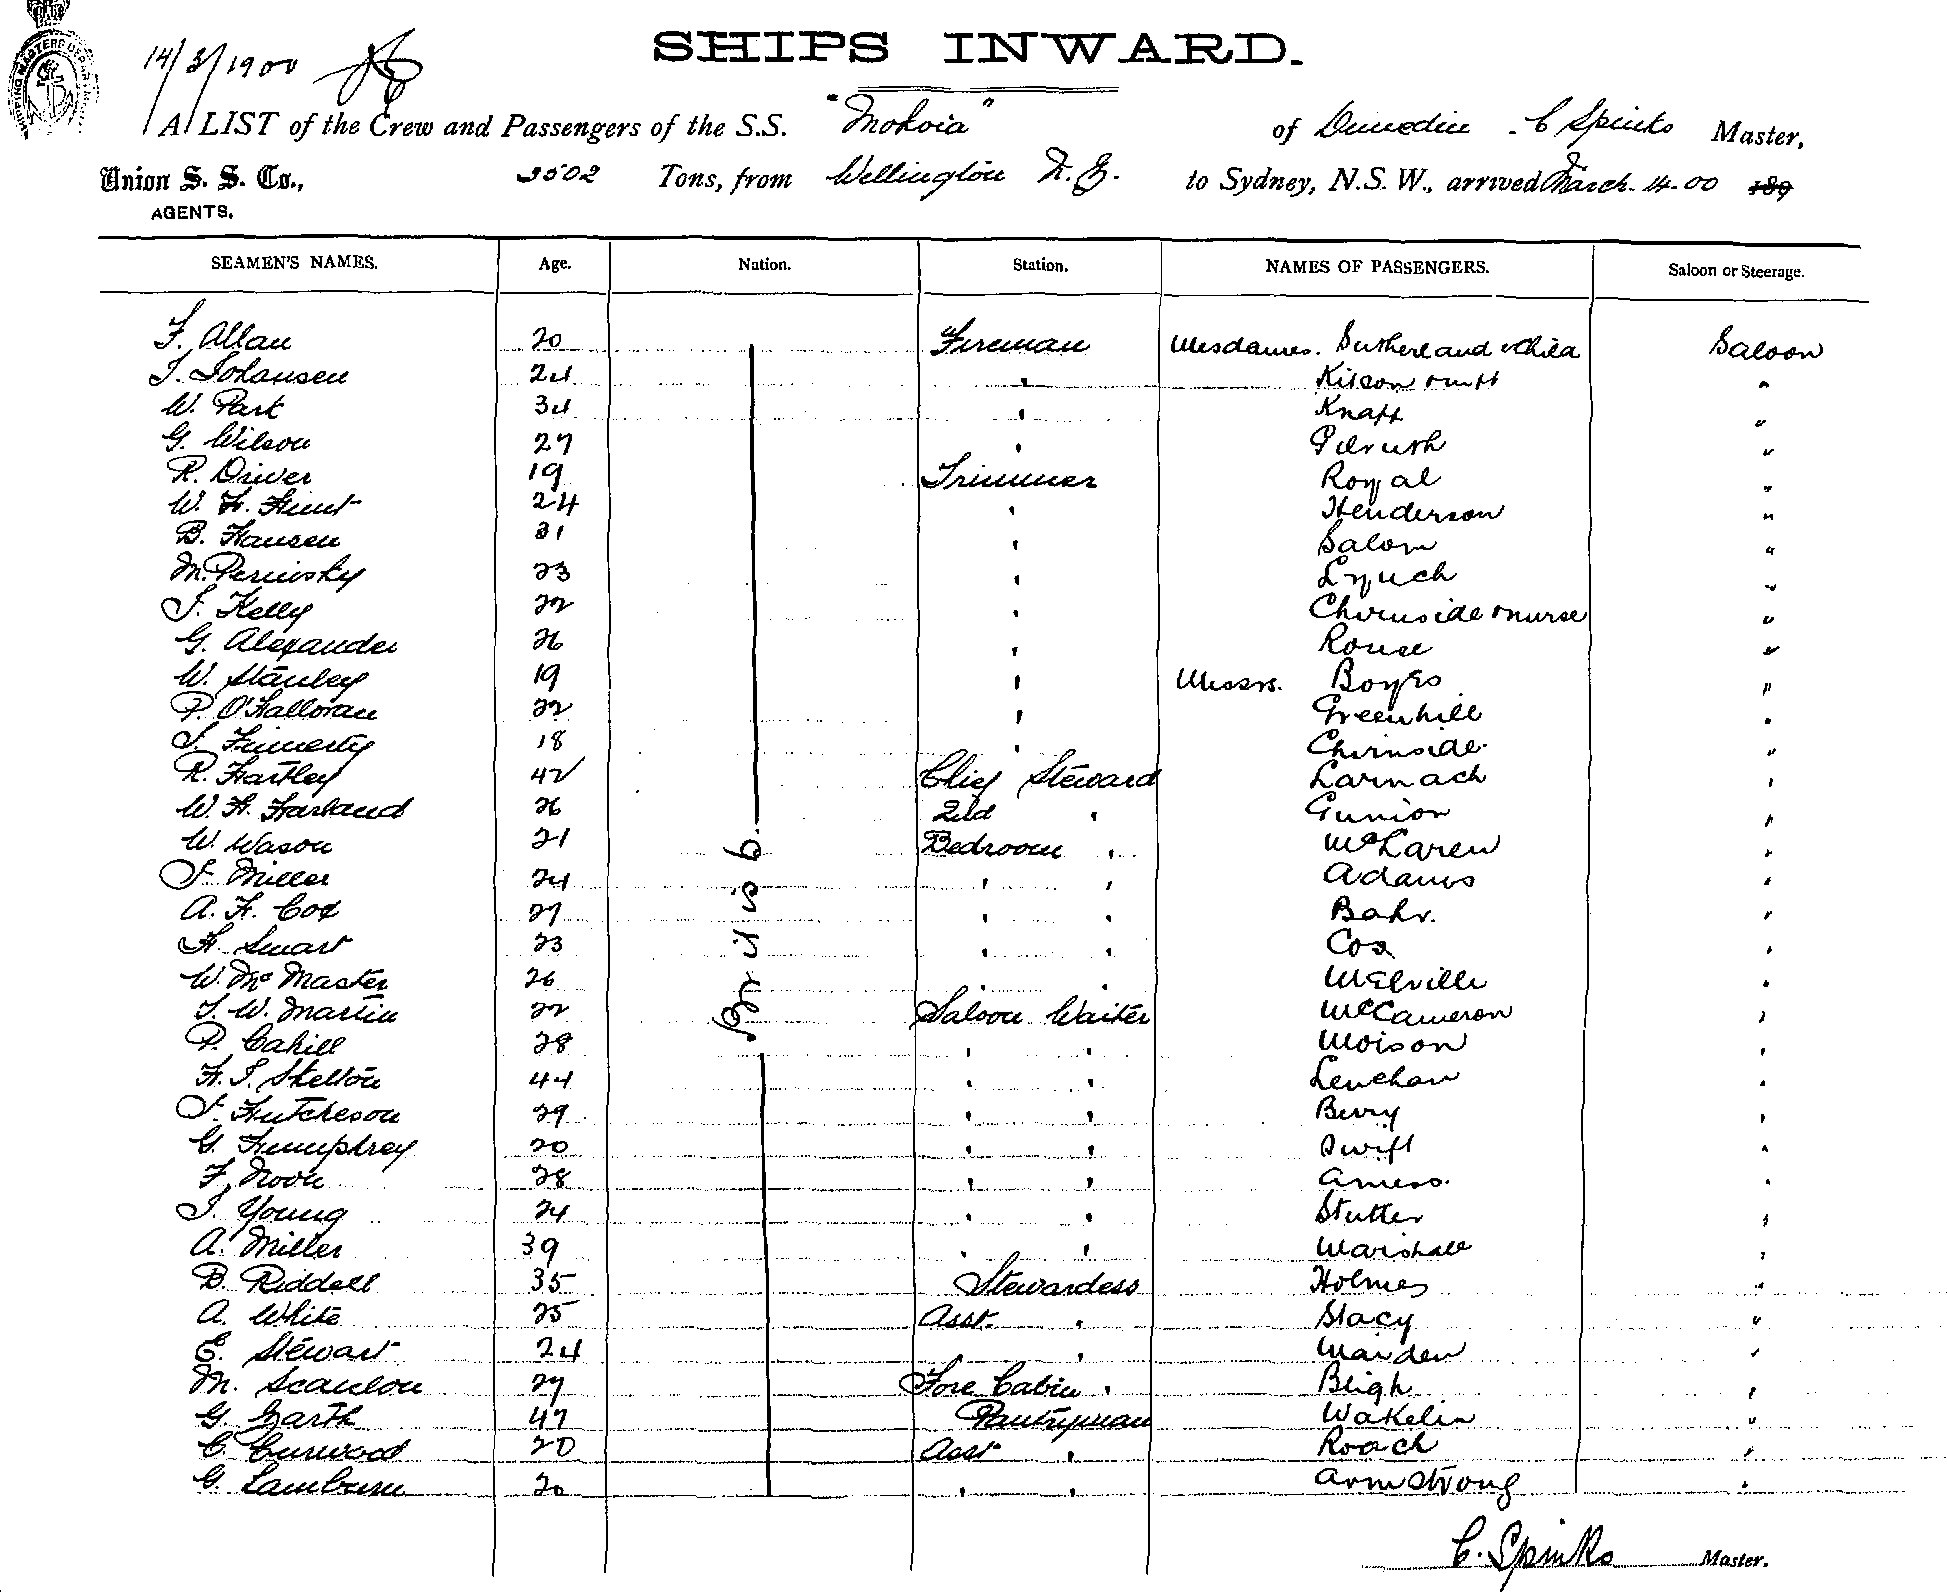 SHIPS INWARD.
14/3/1900
A LIST of the Crew and Passengers of the S.S. "Mokoia" of Dunedin C Spinks Master,
Union S. S. Co., 3502 Tons, from Wellington N.Z. to Sydney, N.S.W., arrived March 14.00 189
AGENTS.
SEAMEN'S NAMES. Age. Nation. Station. NAMES OF PASSENGERS. Saloon or Steerage.
F. Allan 20 Fireman Mesdames. Sutherland & Child Saloon
J. Johansen 24 ' Kitson "
W. Park 34 ' Knapp "
G. Wilson 27 ' "
R. Driver 19 Trimmer Royal "
W. H. Hunt 24 ' Henderson "
B. Hansen 21 ' Salom "
M. Perinsky 23 ' Lynch "
J. Kelly 22 ' Chirnside & nurse "
G. Alexander 26 ' Rouse "
W. Stanley 19 ' Messrs. Boyes "
P. O'Halloran 22 ' Greenhill "
J. Finnerty 18 ' Chirnside "
R. Hartley 42 Chief Steward Larnach "
W. H. Harland 26 2nd ' Gunion "
W. Wason 21 Bedroom ' McLaren "
J. Miller 24 ' ' Adams "
A. H. Cox 27 ' ' Bahr. "
H. Smart 23 ' ' Cox "
W. McMaster 26 ' ' Melville "
J. W. Martin 22 Saloon Waiter McCameron "
P. Cahill 28 ' ' Moison "
H. J. Skelton 44 ' ' Lenehan "
J. Hutcheson 29 ' ' Berry "
G. Humphrey 20 ' ' Swift "
F. Noon 28 ' ' Amess. "
J. Young 24 ' ' Stutter "
A. Miller 39 ' ' Marshall "
B. Riddell 35 Stewardess Holmes "
A. White 25 Asst. ' Stacy "
E. Stewart 24 ' ' Marden "
M. Scanlon 27 Fore Cabin ' Bligh "
G. Garth 47 Pantryman Wakelin "
C. Curwood 20 Asst ' Roach "
G. Lamburn 20 ' ' Armstrong "
British
C. Spinks Master.